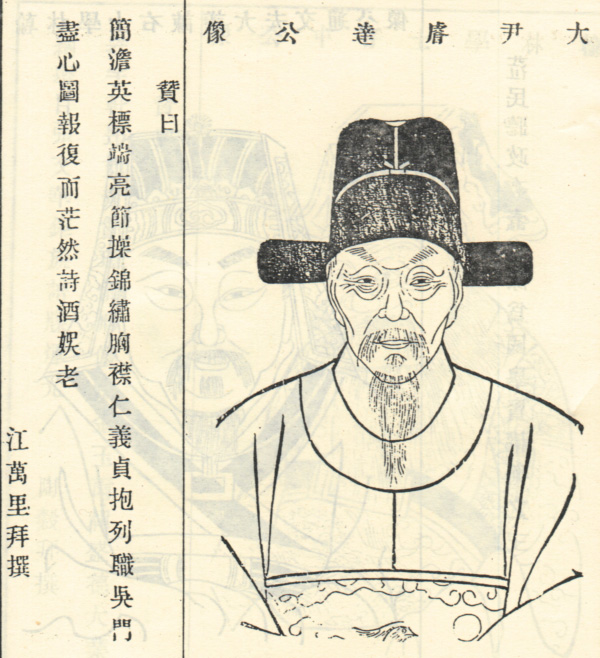 大尹膺達公像
贊曰
簡澹英標端亮節操錦繡胸襟仁義貞抱列職吳門
盡心圖報復而茫然詩酒娛老
江萬里拜撰